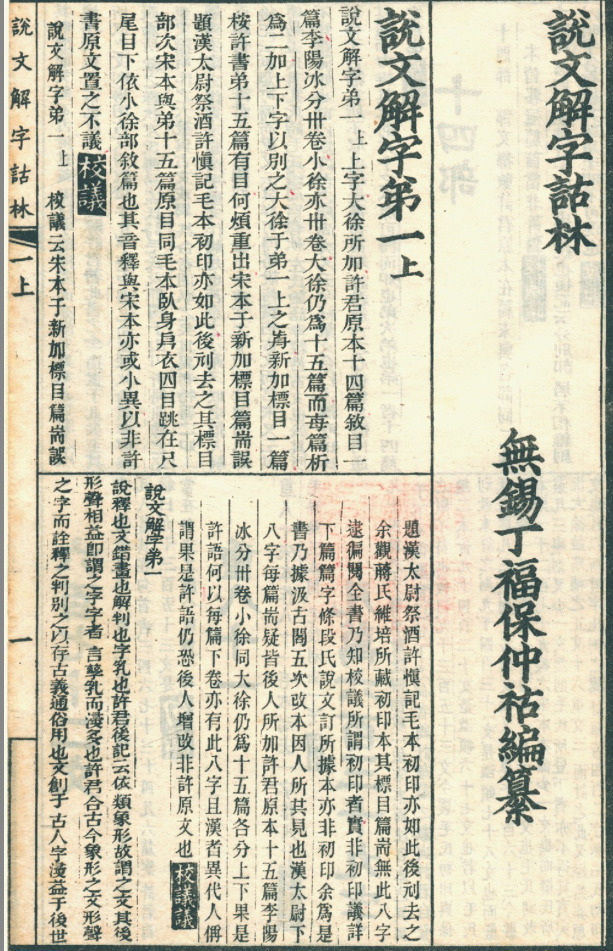 說文解字詁林
無錫丁福保仲祜編纂
說文解字弟一上
說文解字弟一上 上字大徐所加許君原本十四篇敘目一
篇李陽冰分卅卷小徐亦卅卷大徐仍爲十五篇而每篇析
爲二加上下字以別之大徐于弟一上之耑新加標目一篇
桉許書弟十五篇有目何煩重出宋本于新加標目篇耑誤
題漢太尉祭酒許愼記毛本初印亦如此後刓去之其標目
部次宋本與弟十五篇原目同毛本臥身㐆衣四目跳在尺
尾目下依小徐部敘篇也其音釋與宋本亦或小異以非許
書原文置之不議 校議
說文解字弟一上 校議云宋本于新加標目篇耑誤
題漢太尉祭酒許愼記毛本初印亦如此後刓去之
余觀蔣氏維培所藏初印本其標目篇耑無此八字
逮徧閱全書乃知校議所謂初印者實非初印議詳
下篇篇字條段氏說文訂所據本亦非初印余爲是
書乃據汲古閣五次改本因人所其見也漢太尉下
八字每篇耑疑皆後人所加許君原本十五篇李陽
冰分卅卷小徐同大徐仍爲十五篇各分上下果是
許語何以每篇下卷亦有此八字且漢者異代人偁
謂果是許語仍恐後人增改非許原文也 校議議
說文解字弟一
說釋也文錯畫也解判也字乳也許君後記云依類象形故謂之文其後
形聲相益卽謂之字字者言孳乳而浸多也許君合古今象形之文形聲
之字而詮釋之判別之以存古義通俗用也文創于古人字浸益于後世
說文解字詁林 一上 一